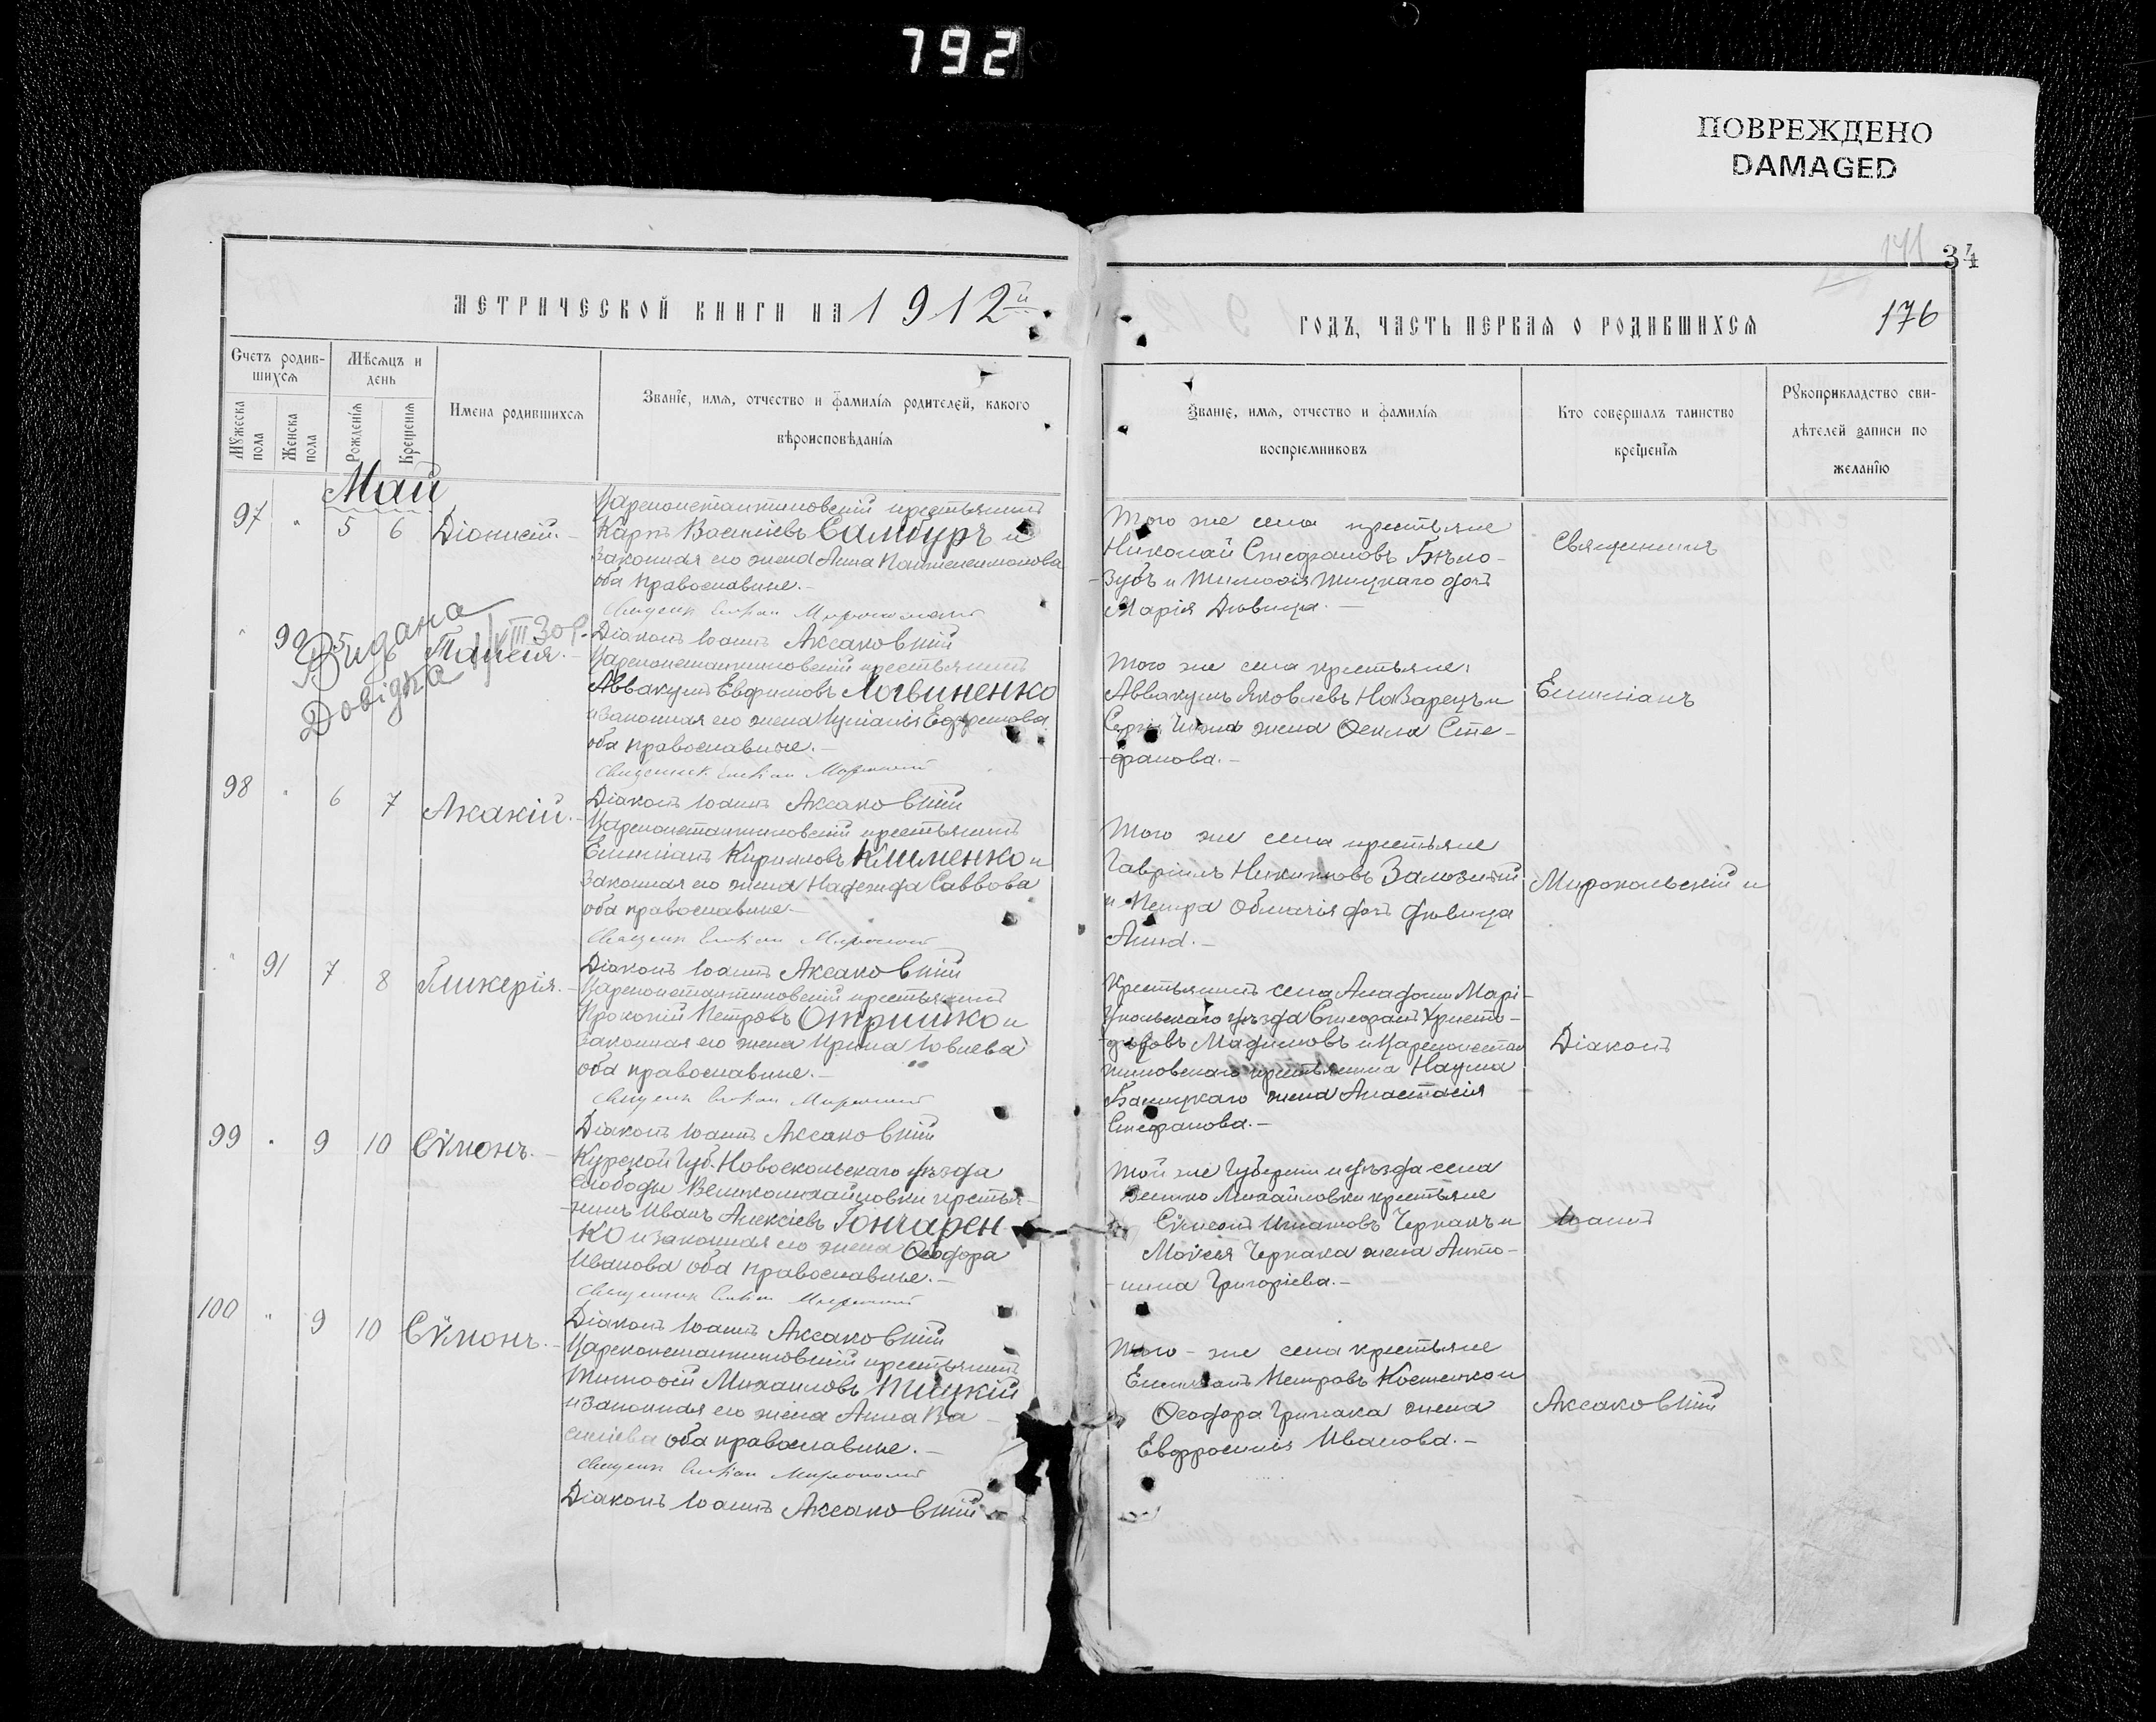 792
ПОВРЕЖДЕНО
DAMAGED
34
176
МЕТРИЧЕСКОЙ КНИГИ НА 1912й
ГОДЪ, ЧАСТЬ ПЕРВАЯ О РОДИВШИХСЯ
Счетъ родив-
шихся
Мужеска пола
Женска пола
Мѣсяцъ и
день
Рожденія
Крещенія
Имена родившихся
Званіе, имя, отчество и фамилія родителей, какого
вѣроисповѣданія
Званіе, имя, отчество и фамилія
воспріемниковъ
Кто совершалъ таинство
крещенія
Рукоприкладство сви-
дѣтелей записи по
желанію
Май
97 " 5 6 Діонисій.-
Цареконстантиновскій крестьянинъ
Карпъ Василіевъ Самбуръ и
законная его жена Анна Пантелеимонова
оба православные.-
Діаконъ Іоаннъ Аксаковскій
Того же села крестьяне
Николай Стефановъ Бѣло-
-зубъ и Тимоѳея Пицкаго дочь
Марія Дѣвица.-
Священникъ
" 90 5 6 Таисія.-
Видана
Довідка
VIII 30 р.
Цареконстантиновскій крестьянинъ
Аввакумъ Евфимовъ Логвиненко
и законная его жена Іуліанія Ефремова
оба православные.-
Діаконъ Іоаннъ Аксаковскій
Того же села крестьяне:
Аввакумъ Яковлевъ Назарецъ и
жена Ѳекла Сте-
-фанова.-
Емиліанъ
98 " 6 7 Акакій.-
Цареконстантиновскій крестьянинъ
Емиліанъ Кирилловъ Клименко и
законная его жена Надежда Саввова
оба православные.-
Діаконъ Іоаннъ Аксаковскій
Того же села крестьяне
Гавріилъ
и Петра дочь дѣвица
Анна.-
Миропольскій и
" 91 7 8 Гликерія.-
Цареконстантиновскій крестьянинъ
Прокопій Петровъ Отришко и
законная его жена Ирина Іовлева
оба православные.-
Діаконъ Іоаннъ Аксаковскій
Крестьянинъ села Анадоли Марі-
-упольскаго уѣзда Стефанъ Христо-
-форовъ и Цареконстан
тиновскаго крестьянина Наума
жена Анастасія
Стефанова.-
Діаконъ
99 " 9 10 Сѵмонъ.-
Курской Губ. Новооскольскаго уѣзда
Слободы Великомихайловки крестья-
-нинъ Иванъ Алексіевъ Гончарен
ко и законная его жена Ѳеодора
Иванова оба православные.-
Діаконъ Іоаннъ Аксаковскій
Той же Губерніи и уѣзда села
Велико Михайловки крестьяне
Сѵмеонъ Игнатовъ Чернакъ и
Моисея Чернака жена Анто-
-нина Григоріева.-
Іоаннъ
100 " 9 10 Сѵмонъ.-
Цареконстантиновскій крестьянинъ
Тимоѳей Михаиловъ Пицкій
и законная его жена Анна Ва-
силіева оба православные.-
Діаконъ Іоаннъ Аксаковскій
Того-же села крестьяне
Емиліанъ Петровъ Костенко и
Ѳеодора жена
Евфросинія Иванова.-
Аксаковскій